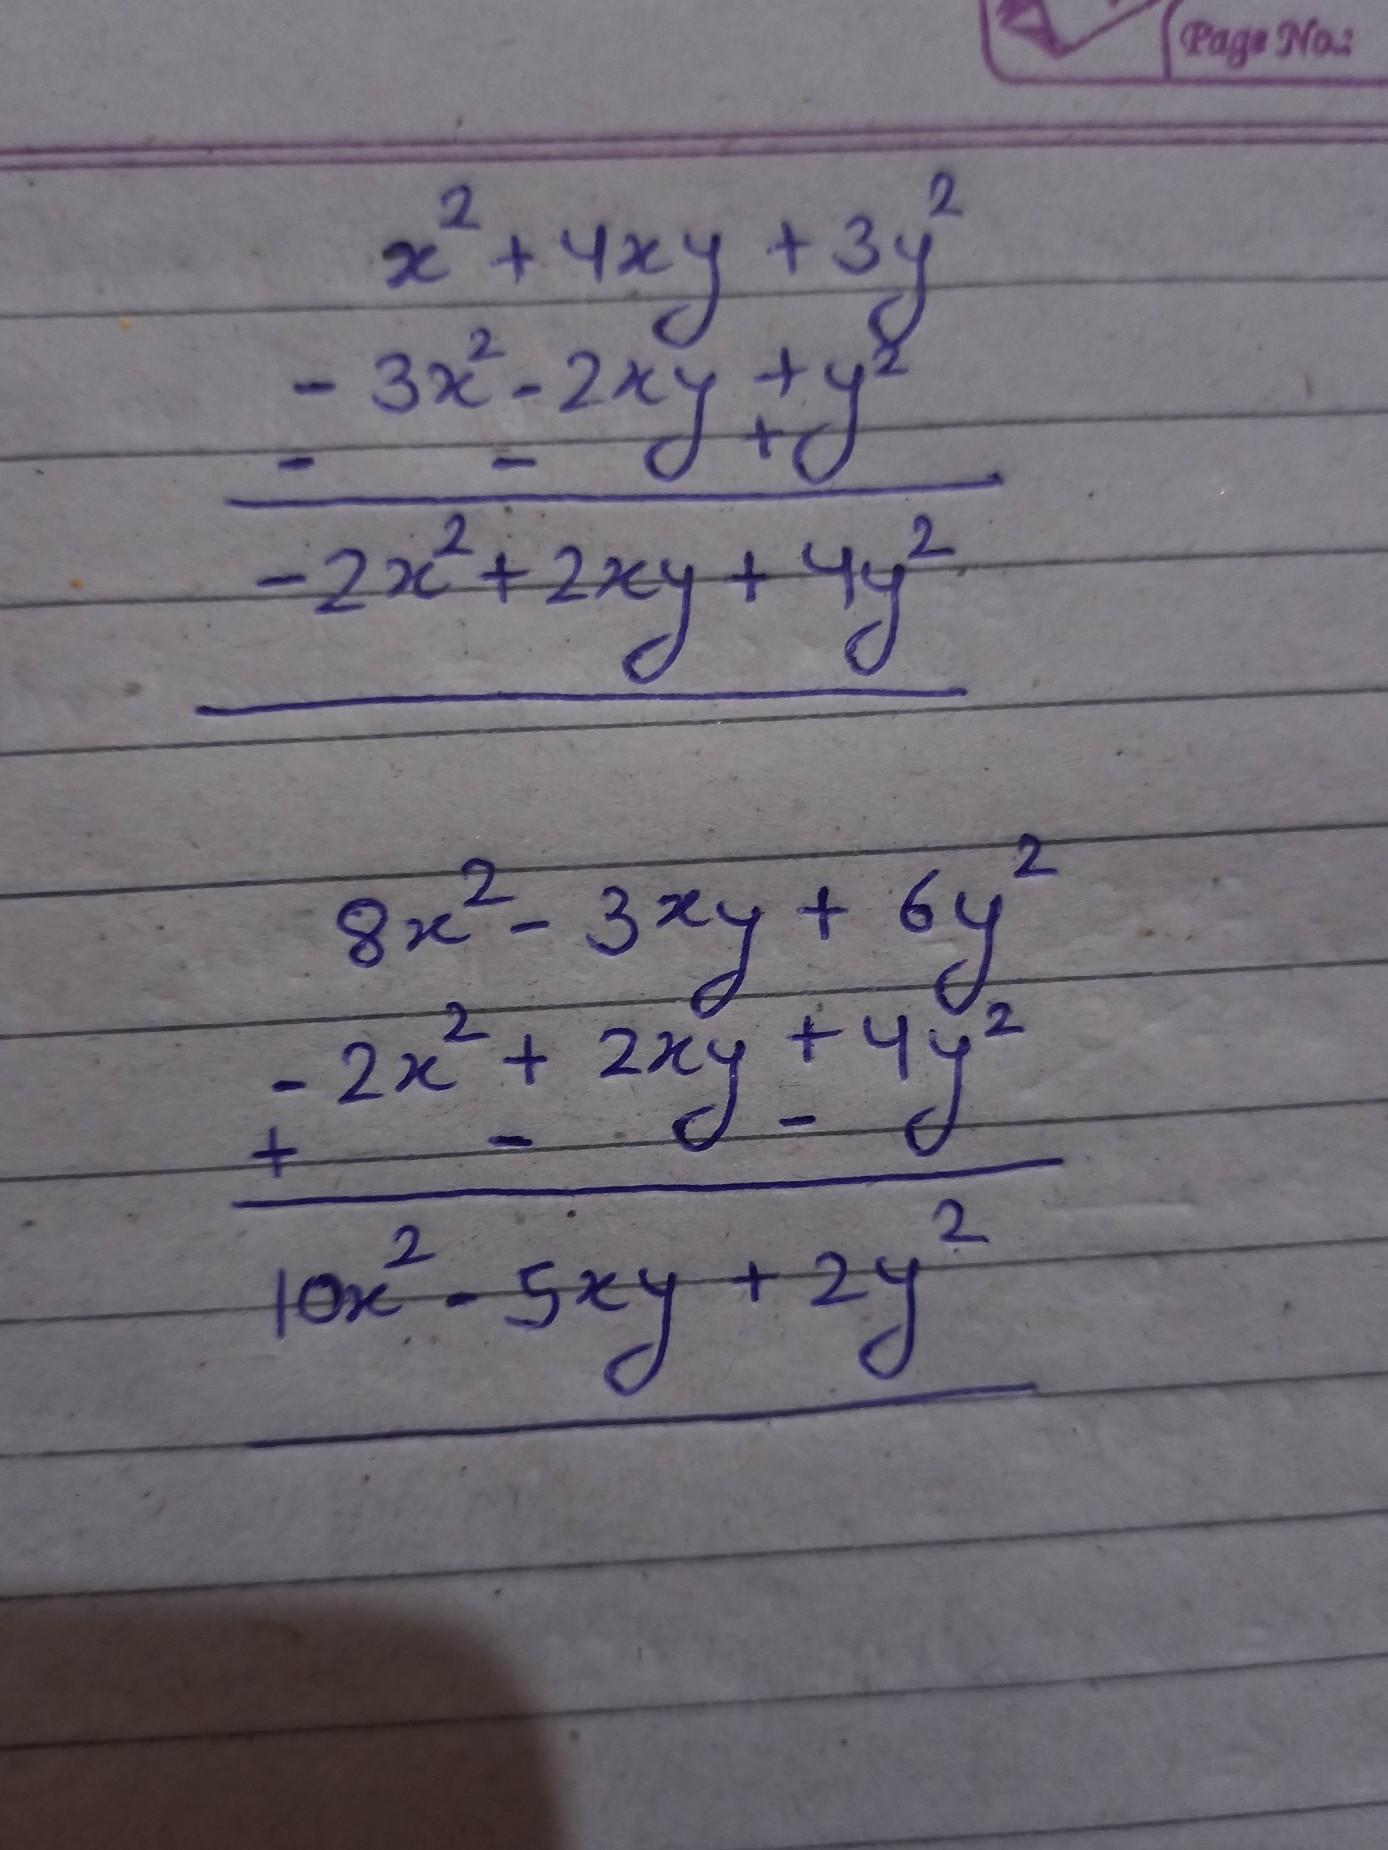 Page No.:
x² + 4xy + 3y²
- 3x² - 2xy + y²
- - +
-2x² + 2xy + 4y²
8x² - 3xy + 6y²
- 2x² + 2xy + 4y²
+ - -
10x² - 5xy + 2y²